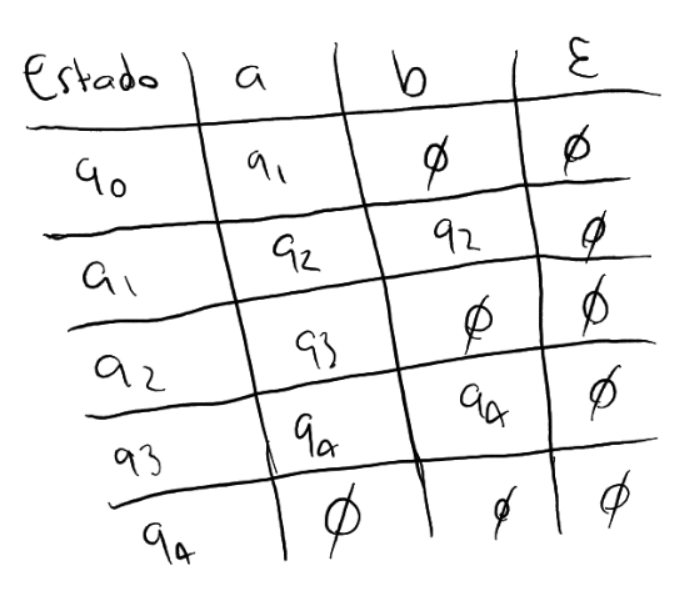 Estado a b ε
q0 q1 ∅ ∅
q1 q2 q2 ∅
q2 q3 ∅ ∅
q3 q4 q4 ∅
q4 ∅ ∅ ∅